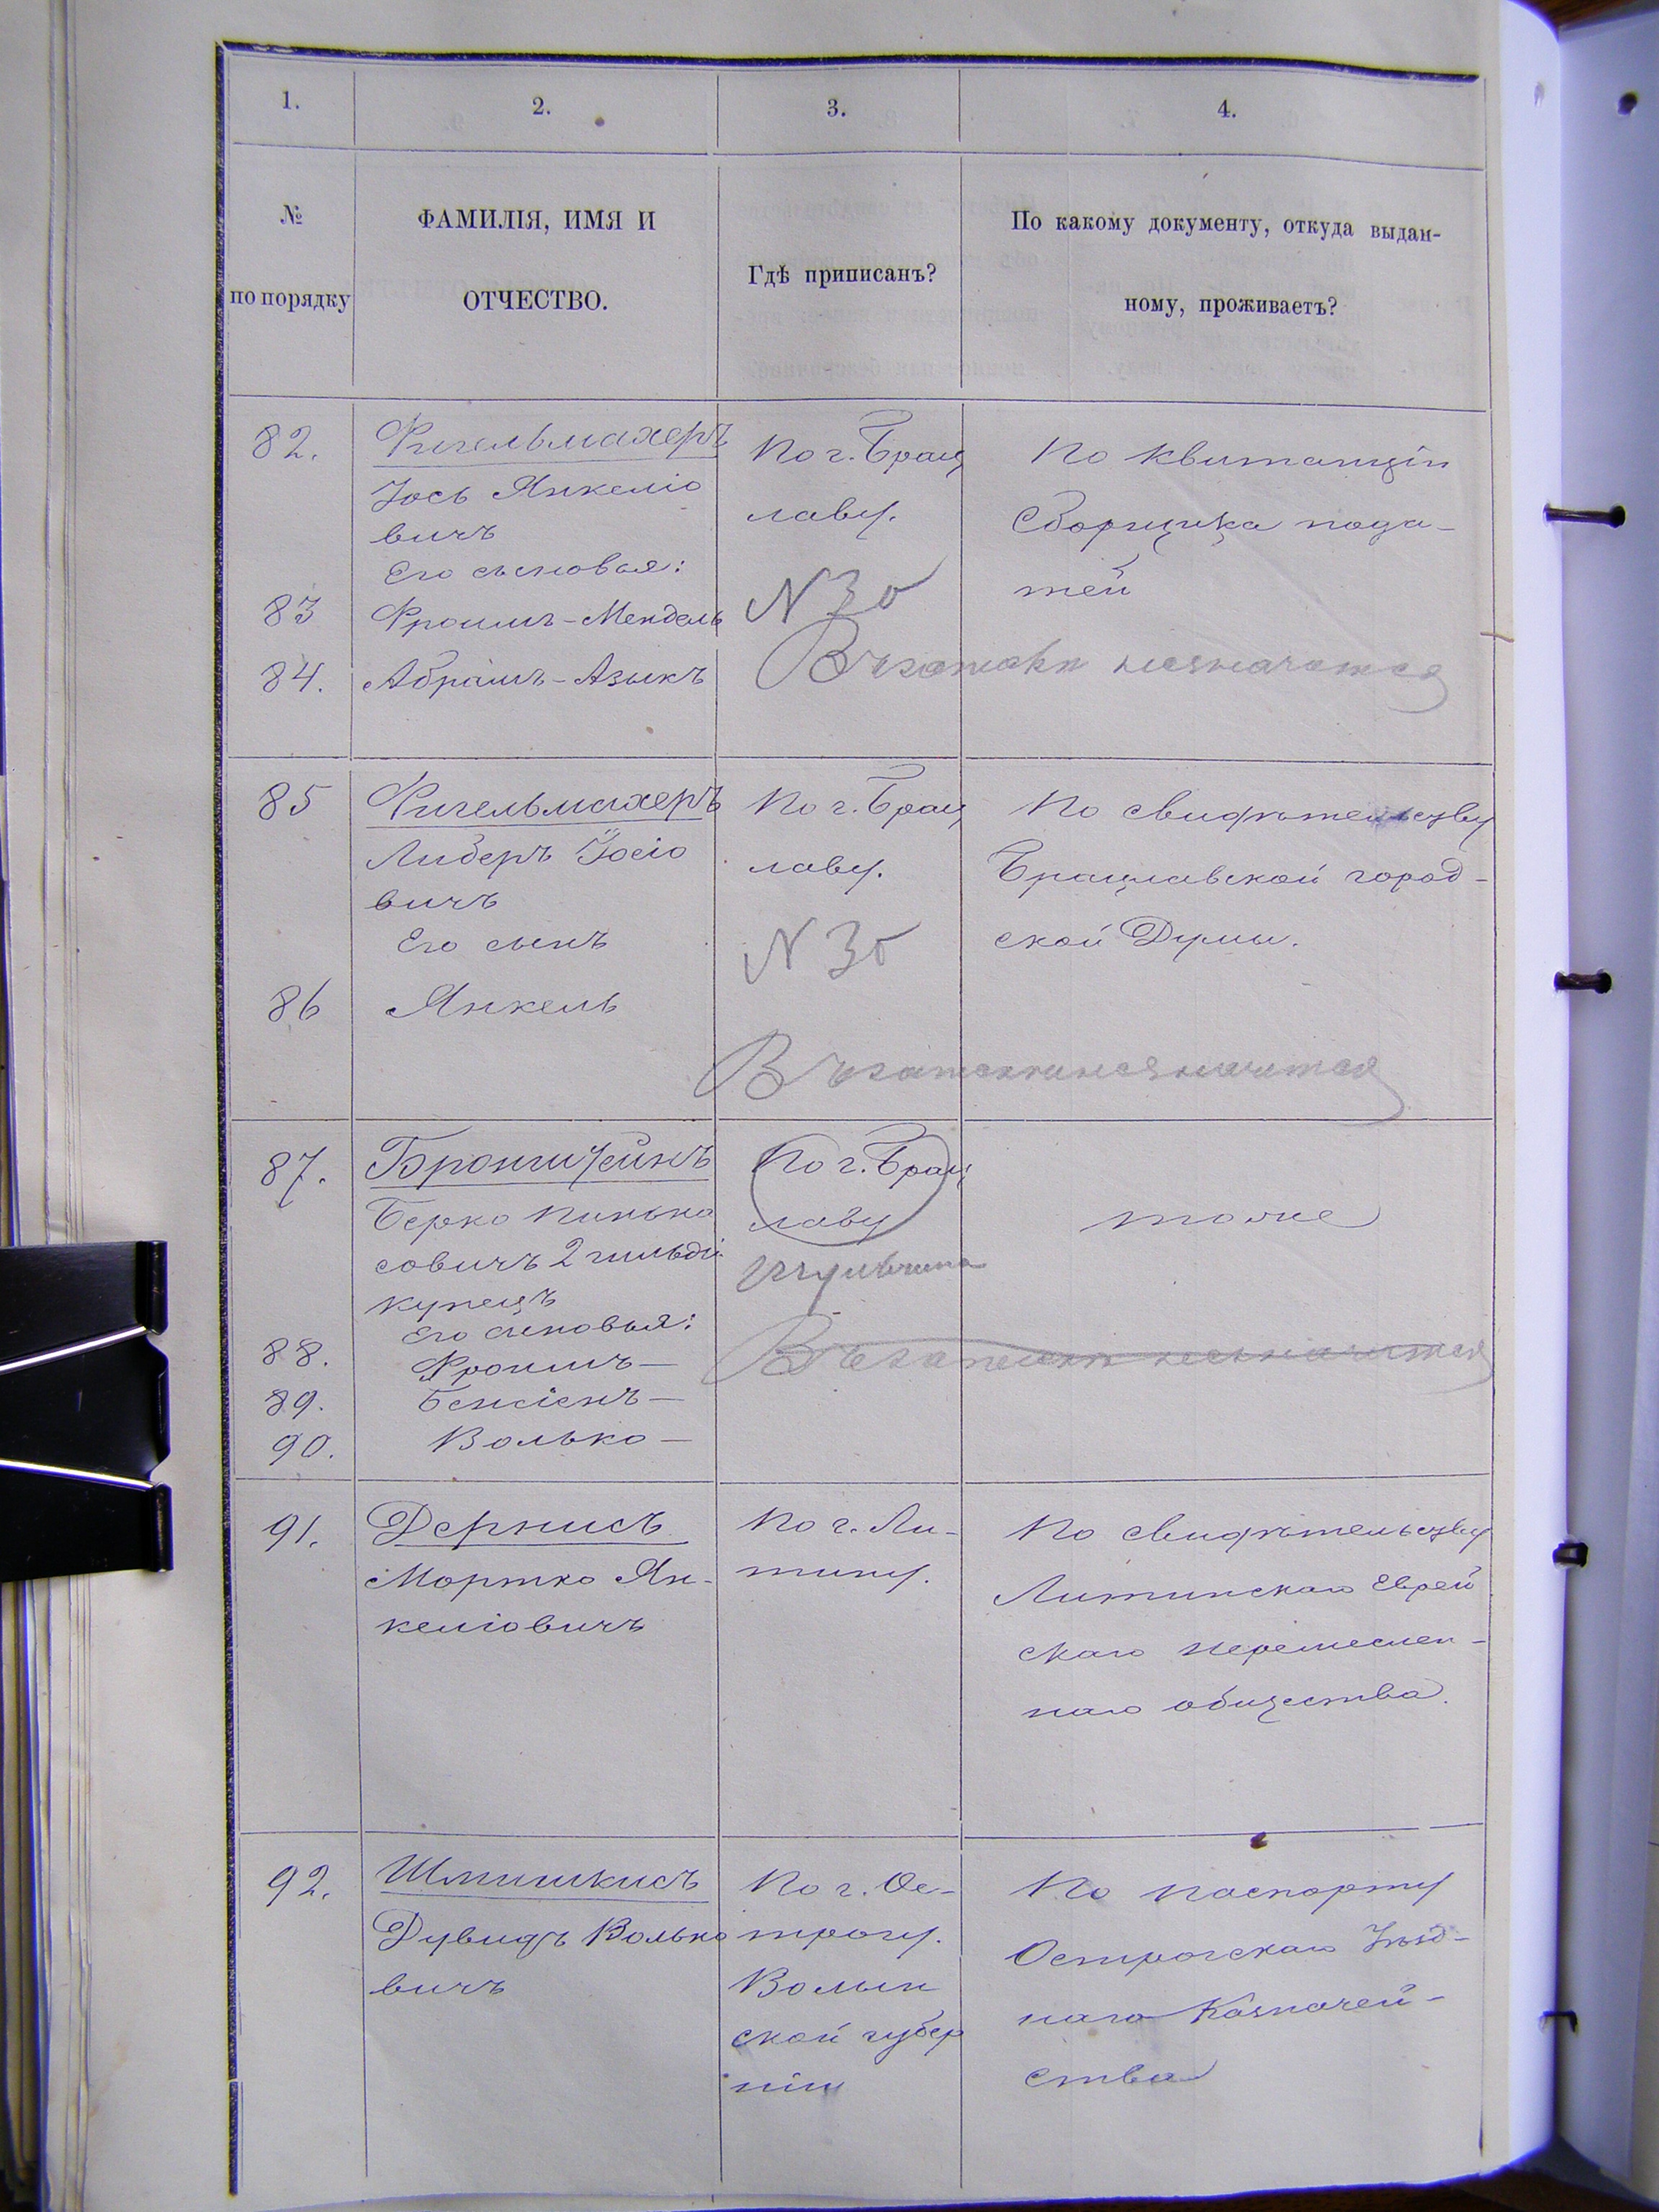 1.
2.
3.
4.
№
по порядку
ФАМИЛІЯ, ИМЯ И
ОТЧЕСТВО.
Гдѣ приписанъ?
По какому документу, откуда выдан-
ному, проживаетъ?
82.
Фигельмахеръ
Іось Янкеліо
вичъ
Его сыновья:
83
Фроимъ-Мендель
84.
Абрамъ-Азыкъ
По г. Брац
лаву.
N 30
По квитанціи
Сборщика пода-
тей
85
Фигельмахеръ
Либеръ Іосіо
вичъ
Его сынъ
86
Янкель
По г. Брац
лаву.
N 30
По свидѣтельству
Брацлавской город-
ской Думы.
87.
Берко Пинька
совичъ 2 гильдіи
купецъ
Его сыновья:
88.
Фроимъ—
89.
90.
Волько—
По г. Брац
лаву
тоже
91.
Дернисъ
Мортко Ян-
келіовичъ
По г. Ли-
тину.
По свидѣтельству
Литинскаго Еврей
скаго
наго общества.
92.
Шпишкисъ
Дувидъ Волько
вичъ
По г. Ос-
трогу.
Волын
ской губер
ніи
По паспорту
Острогскаго Уѣзд-
наго Казначей-
ства